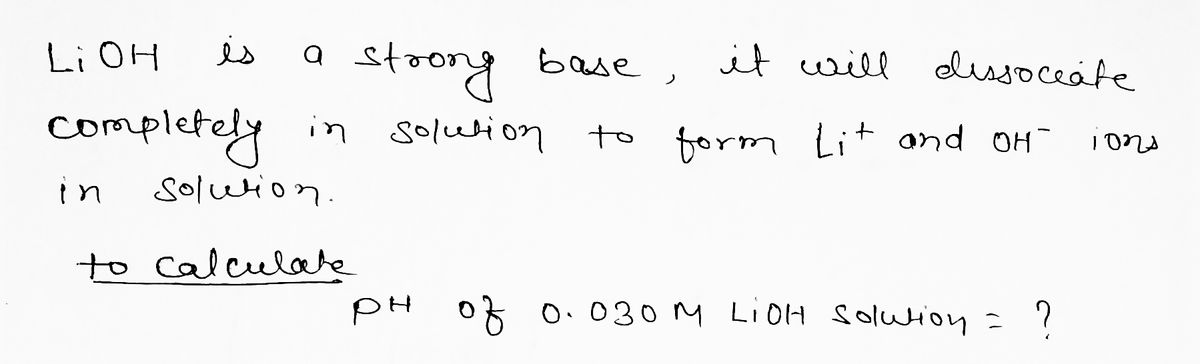 LiOH is a strong base, it will dissociate
completely in solution to form Li⁺ and OH⁻ ions
in solution.
to calculate
pH of 0.030 M LiOH solution = ?